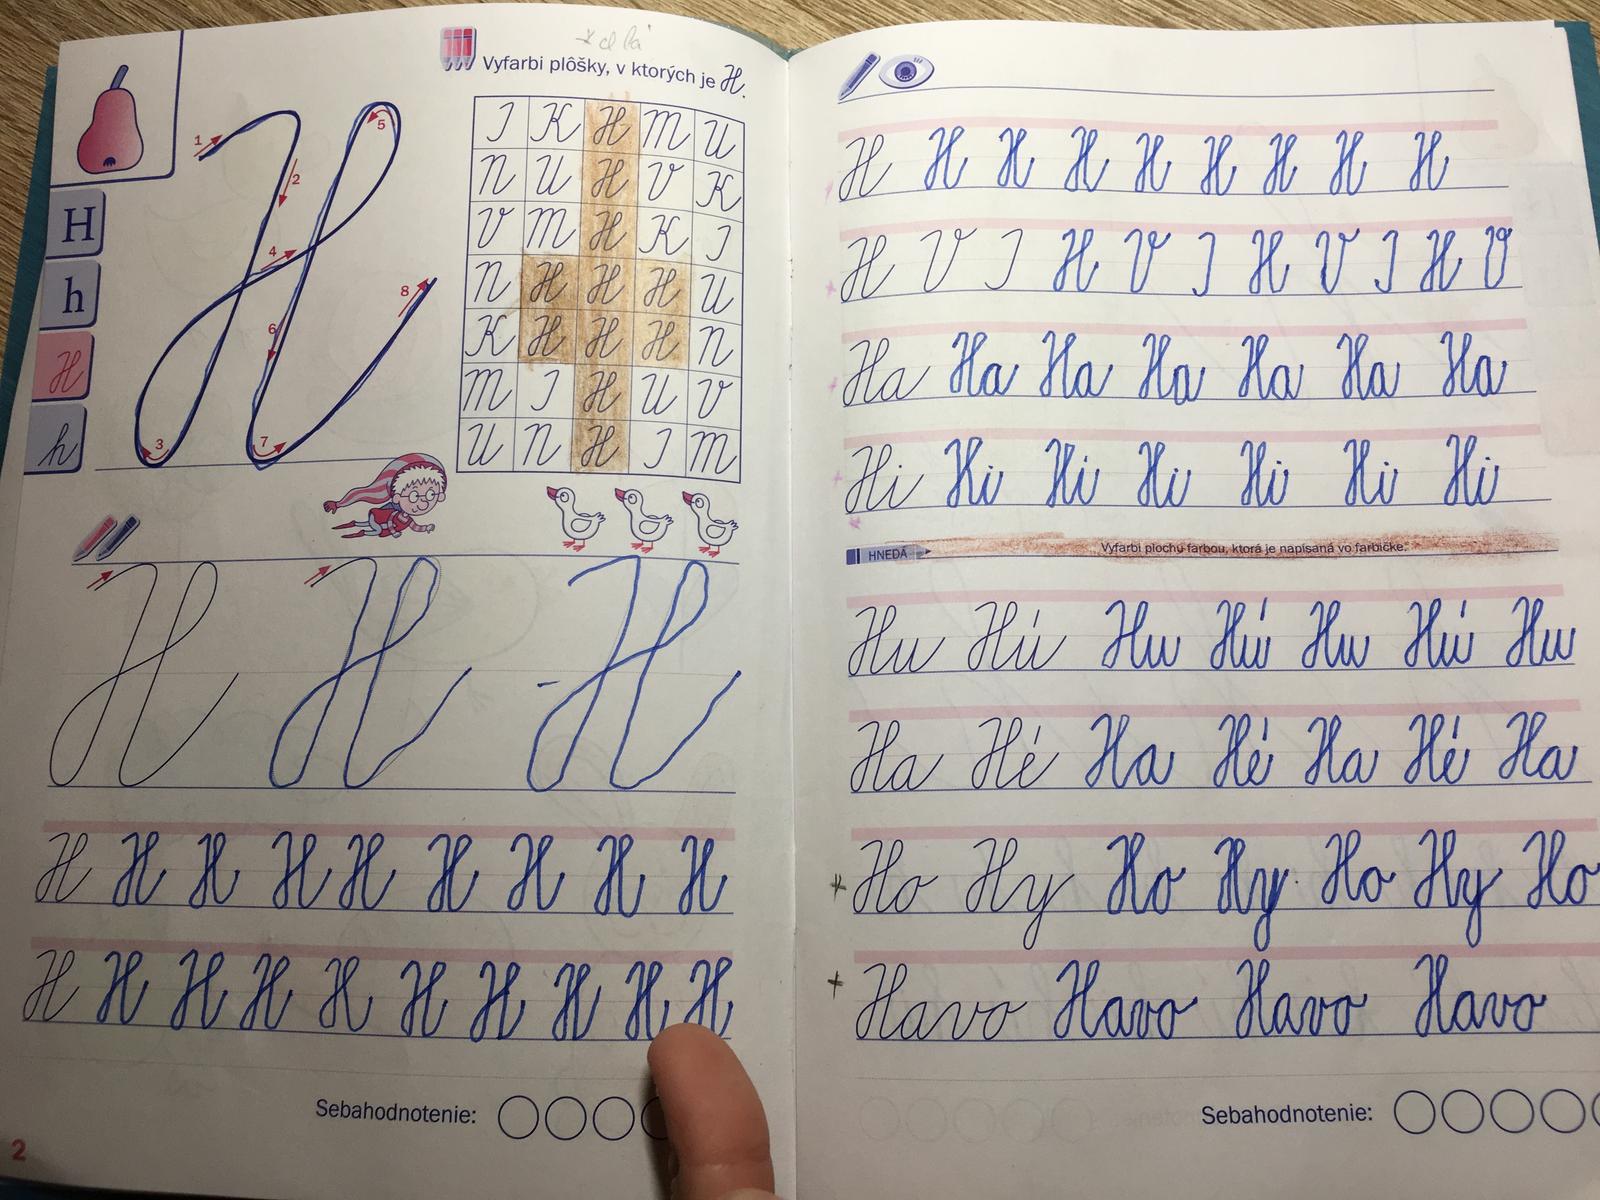 Vyfarbi plôšky, v ktorých je H.
1
2
3
4
5
6
7
8
H
h
H
h
J K H M U
N U H V K
V M H K J
N H H H U
K H H H N
M J H U V
U N H J M
H H H
H H H H H H H H H
H H H H H H H H H H
Sebahodnotenie:
2
H H H H H H H H
H V J H V J H V J H V
Ha Ha Ha Ha Ha Ha Ha
Hi Hi Hi Hi Hi Hi Hi
HNEDÁ Vyfarbi plochu farbou, ktorá je napísaná vo farbičke.
Hu Hú Hu Hú Hu Hú Hu
Ha Hé Ha Hé Ha Hé Ha
Ho Hy Ho Hy Ho Hy Ho
Havo Havo Havo Havo
Sebahodnotenie: